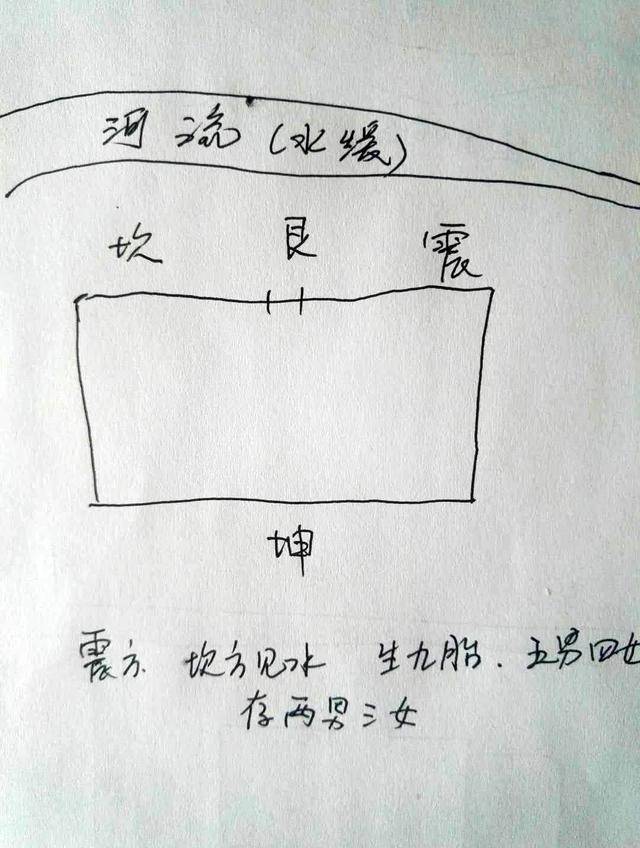 河流(水缓)
坎 艮 震
坤
震方 坎方见水 生九胎.五男四女
存两男三女